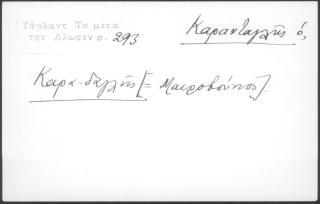 Ὑψηλαντ Τα μετα
την Αλωσιν σ. 293
Καρανταγλῆς ὁ,
Καρα-δαγλῆς [= Μαυροβούνιος].